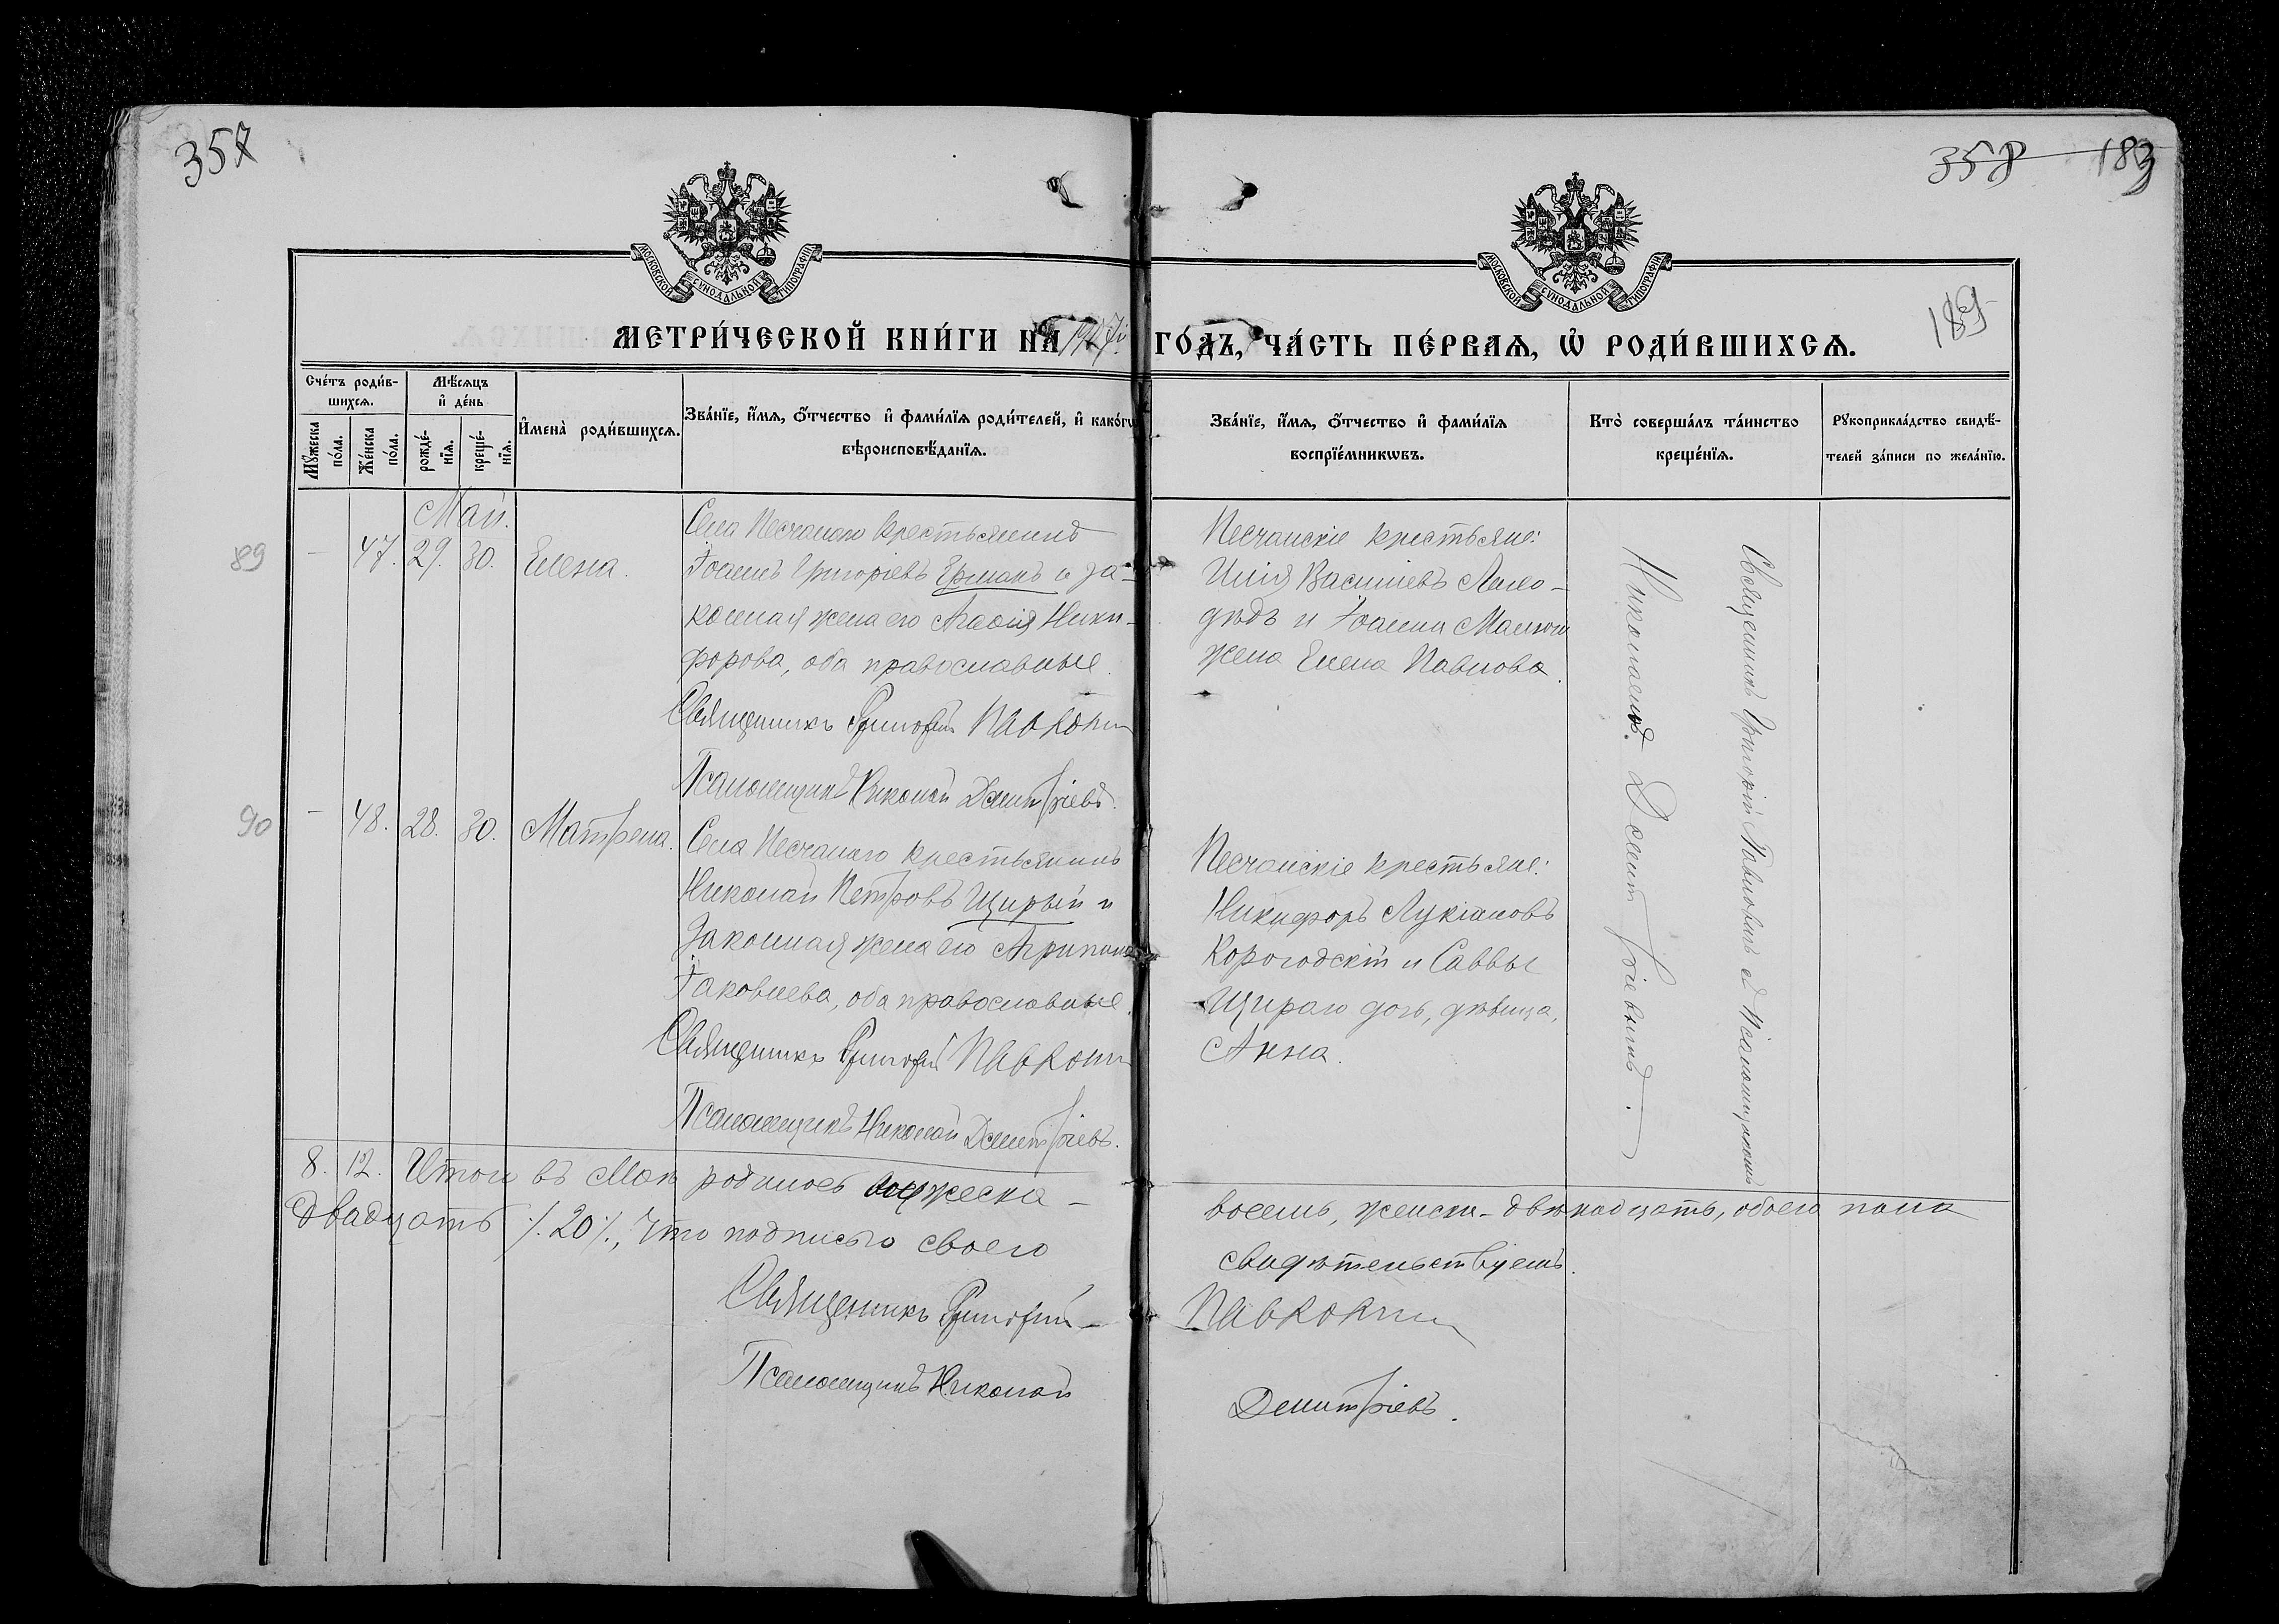 357
358 183
189
МОСКОВСКОЙ СУНОДАЛЬНОЙ ТИПОГРАФІИ
МОСКОВСКОЙ СУНОДАЛЬНОЙ ТИПОГРАФІИ
МЕТРИ́ЧЕСКОЙ КНИ́ГИ НА
ГО́ДЪ, ЧА́СТЬ ПЕ́РВАѦ, Ѡ҆ РОДИ́ВШИХСѦ.
Сче́тъ роди́в-
шихсѧ.
Мꙋ́жеска по́ла.
Же́нска по́ла.
Мѣ́сѧцъ
и҆ де́нь
рожде́-
нїѧ.
креще́-
нїѧ.
И҆мена̀ роди́вшихсѧ.
Зва́нїе, и҆́мѧ, ѻ҆́тчество и҆ фами́лїѧ роди́телей, и҆ како́гѡ
вѣроисповѣ́данїѧ.
Зва́нїе, и҆́мѧ, ѻ҆́тчество и҆ фами́лїѧ
воспрїе́мникѡвъ.
Кто̀ соверша́лъ та́инство
креще́нїѧ.
Рꙋкоприкла́дство свидѣ́-
телей за́писи по жела́нїю.
Май.
89 — 47. 29. 30. Елена.
Села Песчаного крестьянинъ
Іоаннъ Григоріевъ Ерманъ и за-
конная жена его Агафія Ники-
форова, оба православные.
Священникъ Григорій
Псаломщикъ Николай Дмитріевъ.
Песчанскіе крестьяне:
Илія Васильевъ
и Іоанна
жена Елена Павлова.
Священникъ Григорій Павловичъ съ Псаломщикомъ
Николаемъ Дмитріевымъ.
90 — 48. 28. 30. Матрена.
Села Песчаного крестьянинъ
Николай Петровъ Щирый и
законная жена его
Іаковлева, оба православные.
Священникъ Григорій
Псаломщикъ Николай Дмитріевъ.
Песчанскіе крестьяне:
Никифоръ Лукіановъ
Корогодскій и Саввы
Щираго дочь, дѣвица,
Анна.
8. 12. Итого въ Маѣ родилось мужеска —
восемь, женска — двѣнадцать, обоего пола
двадцать /. 20 /., что подписью своею
свидѣтельствуемъ.
Священникъ Григорій —
Псаломщикъ Николай
Дмитріевъ.